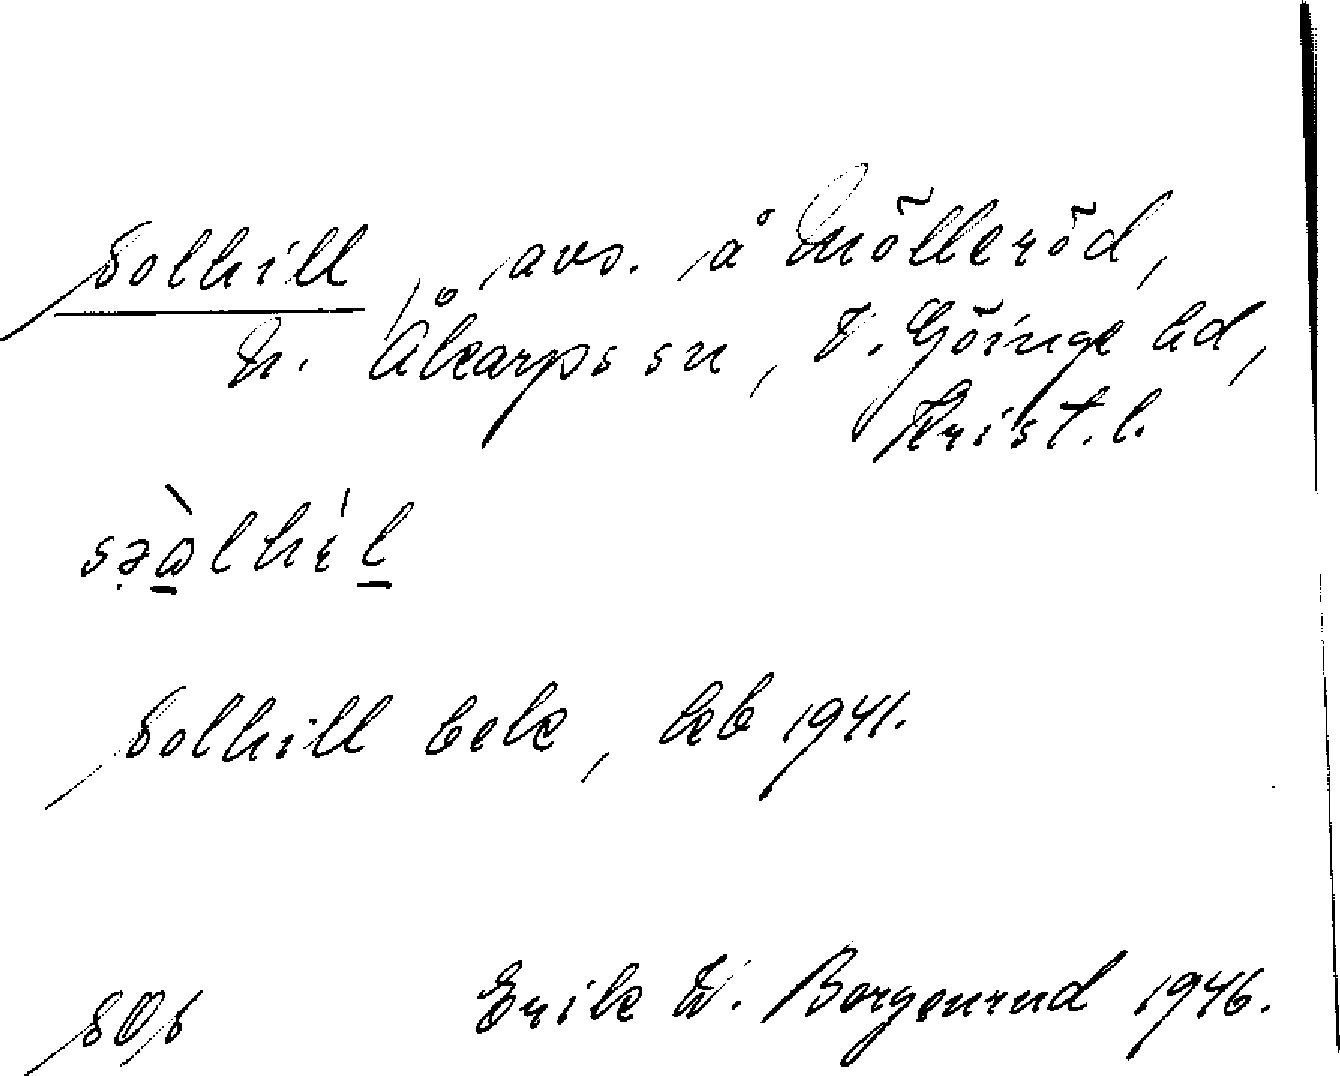 Solhill, avs. å Mölleröd,
N. Åkarps sn, V. Göinge hd,
Krist. l.
Solhill bek, kb 1941.
Erik W. Borgenrud 1946.